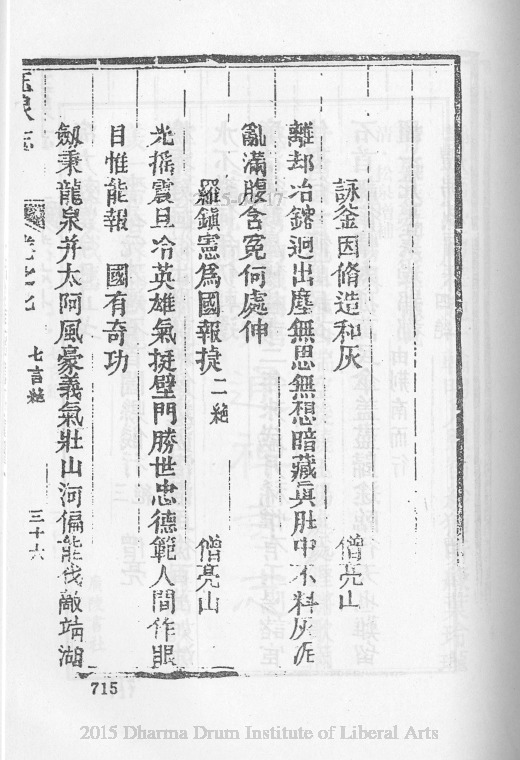 詠釜因脩造和灰 僧亮山
離却冶鎔迥出塵無思無想暗藏真肚中不料灰泥
亂滿腹含冤何處伸
羅鎮憲為國報捷二絶 僧亮山
光摇震旦冷英雄氣挺壁門勝世忠德範人間作眼
目惟能報 國有奇功
劔秉龍泉并太阿風豪義氣壯山河偏能伐敵靖湖
玉泉志 卷之九 七言絶 三十六
715
2015 Dharma Drum Institute of Liberal Arts